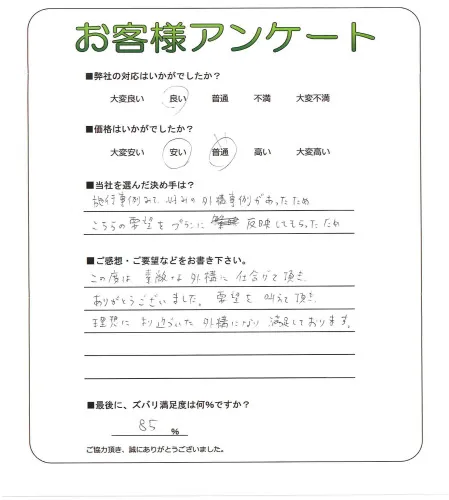 お客様アンケート
■弊社の対応はいかがでしたか？
大変良い 良い 普通 不満 大変不満
■価格はいかがでしたか？
大変安い 安い 普通 高い 大変高い
■当社を選んだ決め手は？
施行事例みて、好みの外構事例があったため
こちらの要望をプランに 反映してもらったため
■ご感想・ご要望などをお書き下さい。
この度は 素敵な外構に仕合げて頂き
ありがとうございました。要望を叶えて頂き
理想により近づいた外構になり満足しております。
■最後に、ズバリ満足度は何％ですか？
85 %
ご協力頂き、誠にありがとうございました。